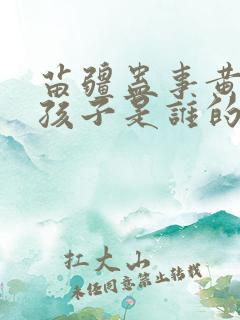 苗疆蛊事黄
孩子是誰的
扛大山
未经同意禁止转载